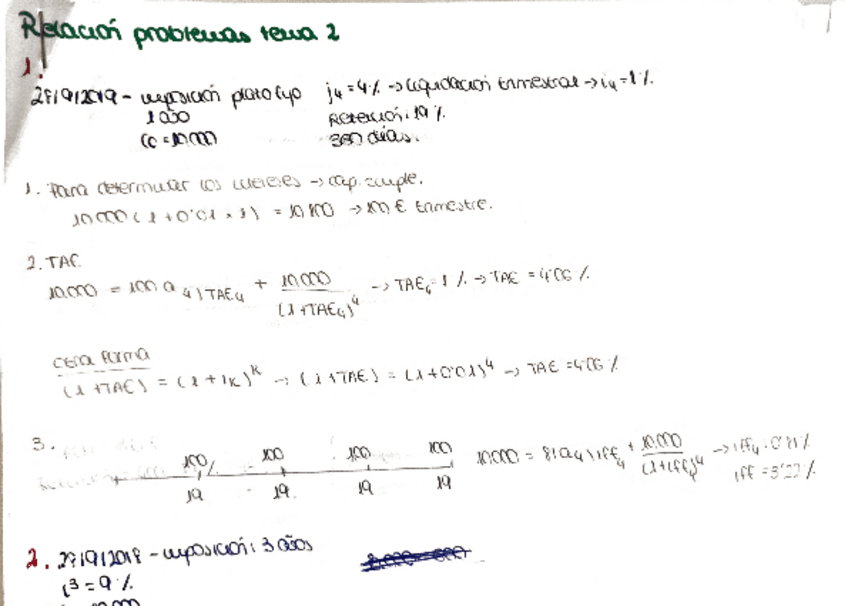 Relación problemas tema 2
1.
27/9/2019 - imposición plazo fijo j4 = 4% → liquidación trimestral → i4 = 1%.
1 año Retención: 19%.
C0 = 10.000 360 días.
1. Para determinar los intereses → cap. simple.
10.000 (1 + 0'01 × 1) = 10.100 → 100 € trimestre.
2. TAE
10.000 = 100 a4⌉TAE4 + 10.000/(1+TAE4)^4 → TAE4 = 1% → TAE = 4'06%
Otra forma
(1 + TAE) = (1 + iK)^K → (1 + TAE) = (1 + 0'01)^4 → TAE = 4'06%
3.
100 100 100 100 10.000 = 81 a4⌉iff4 + 10.000/(1+iff4)^4 → iff4 = 0'81%
19 19 19 19 iff = 3'27%
2. 27/9/2018 - imposición: 3 años
i^3 = 9%